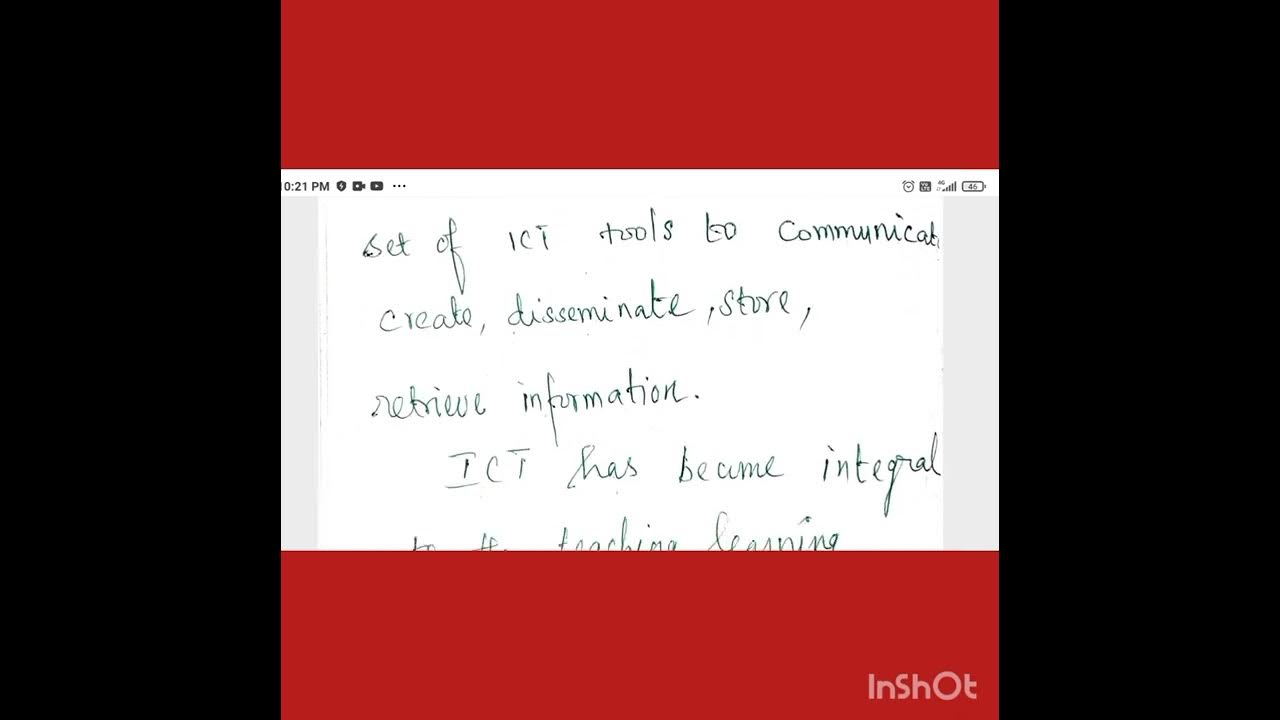 10:21 PM ...
46
set of ICT tools to communicat
create, disseminate, store,
retrieve information.
ICT has became integral
to the teaching learning
InShOt